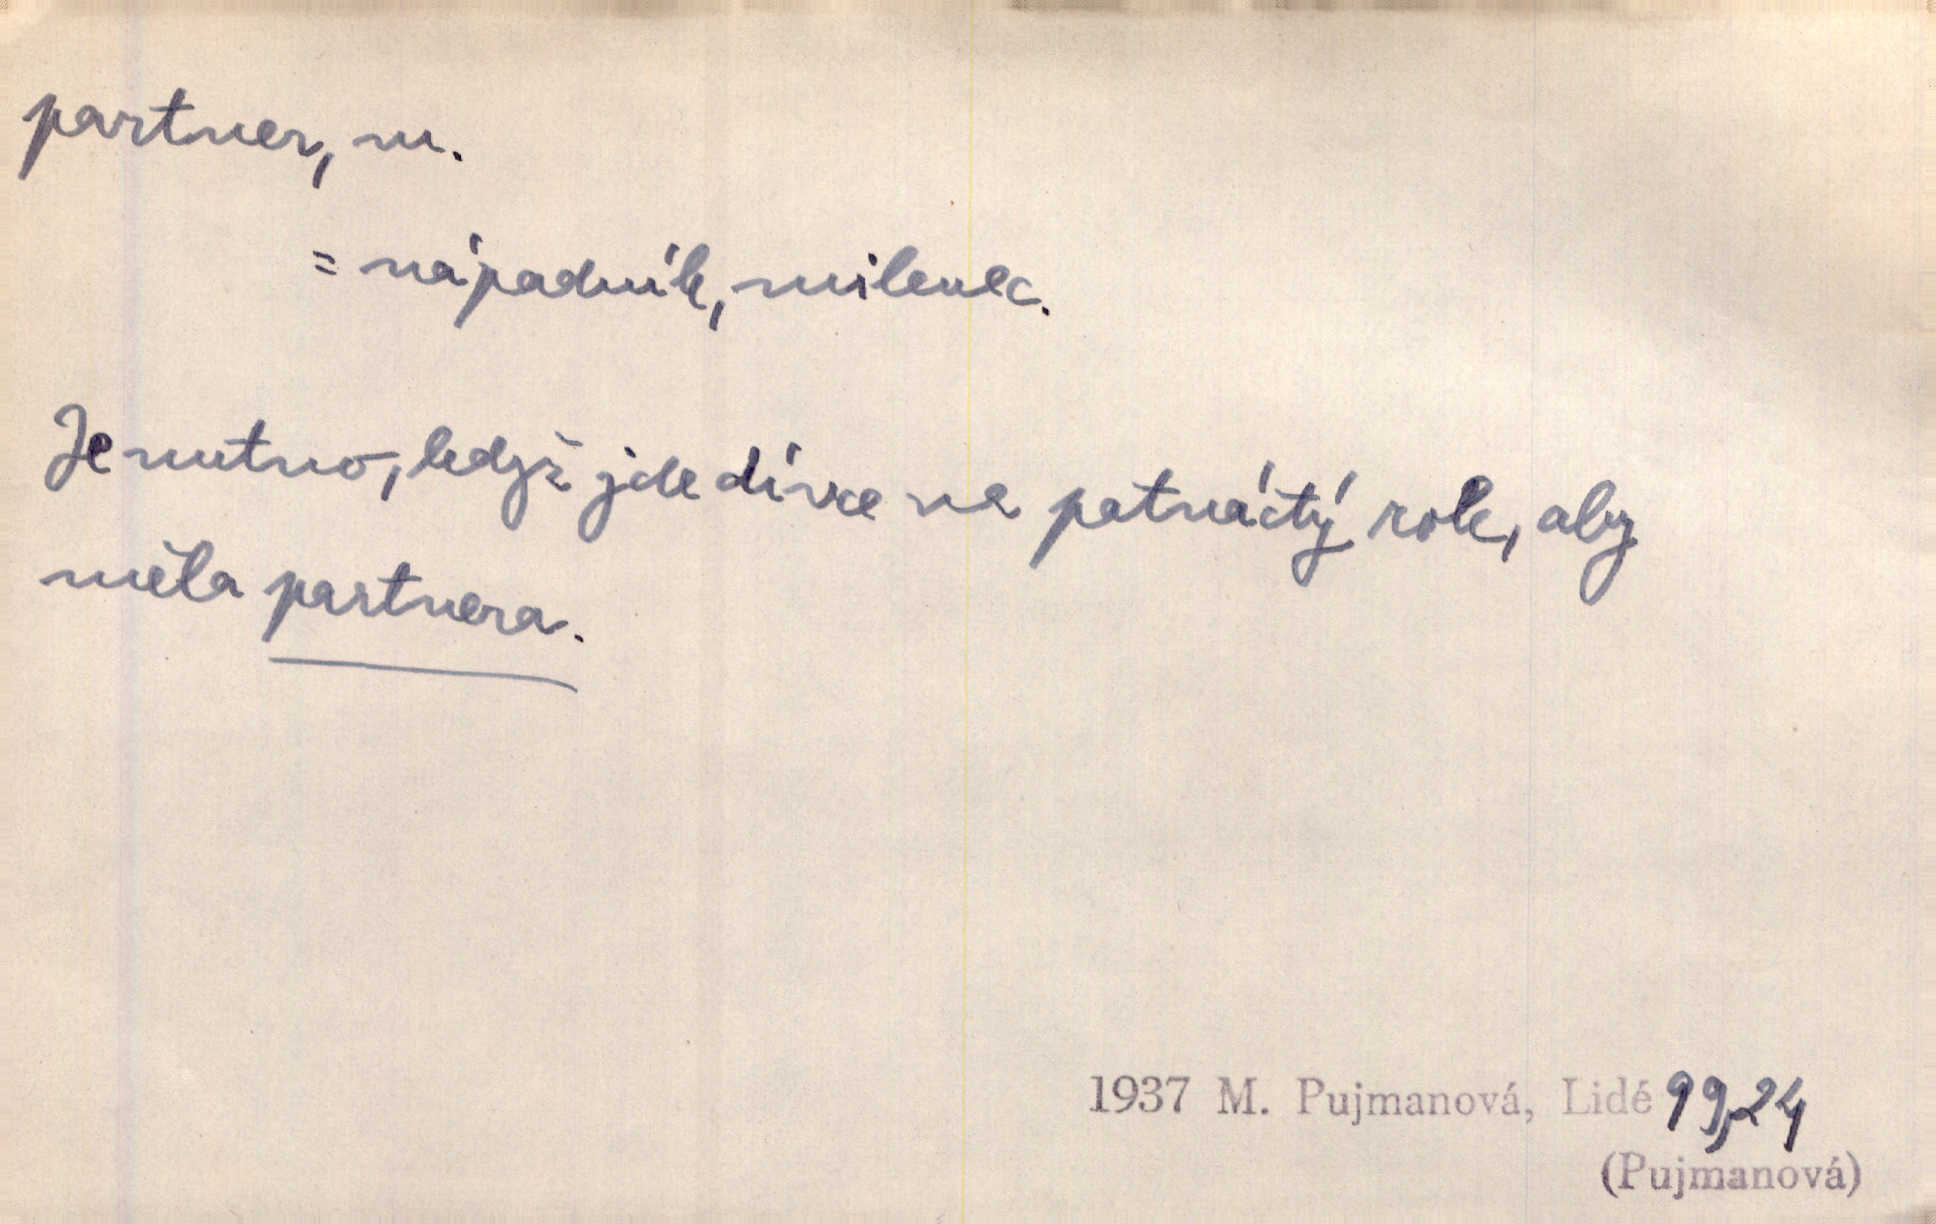 partner, m.
= nápadník, milenec.
Je nutno, když jde dívce na patnáctý rok, aby
měla partnera.
1937 M. Pujmanová, Lidé 99,24
(Pujmanová)